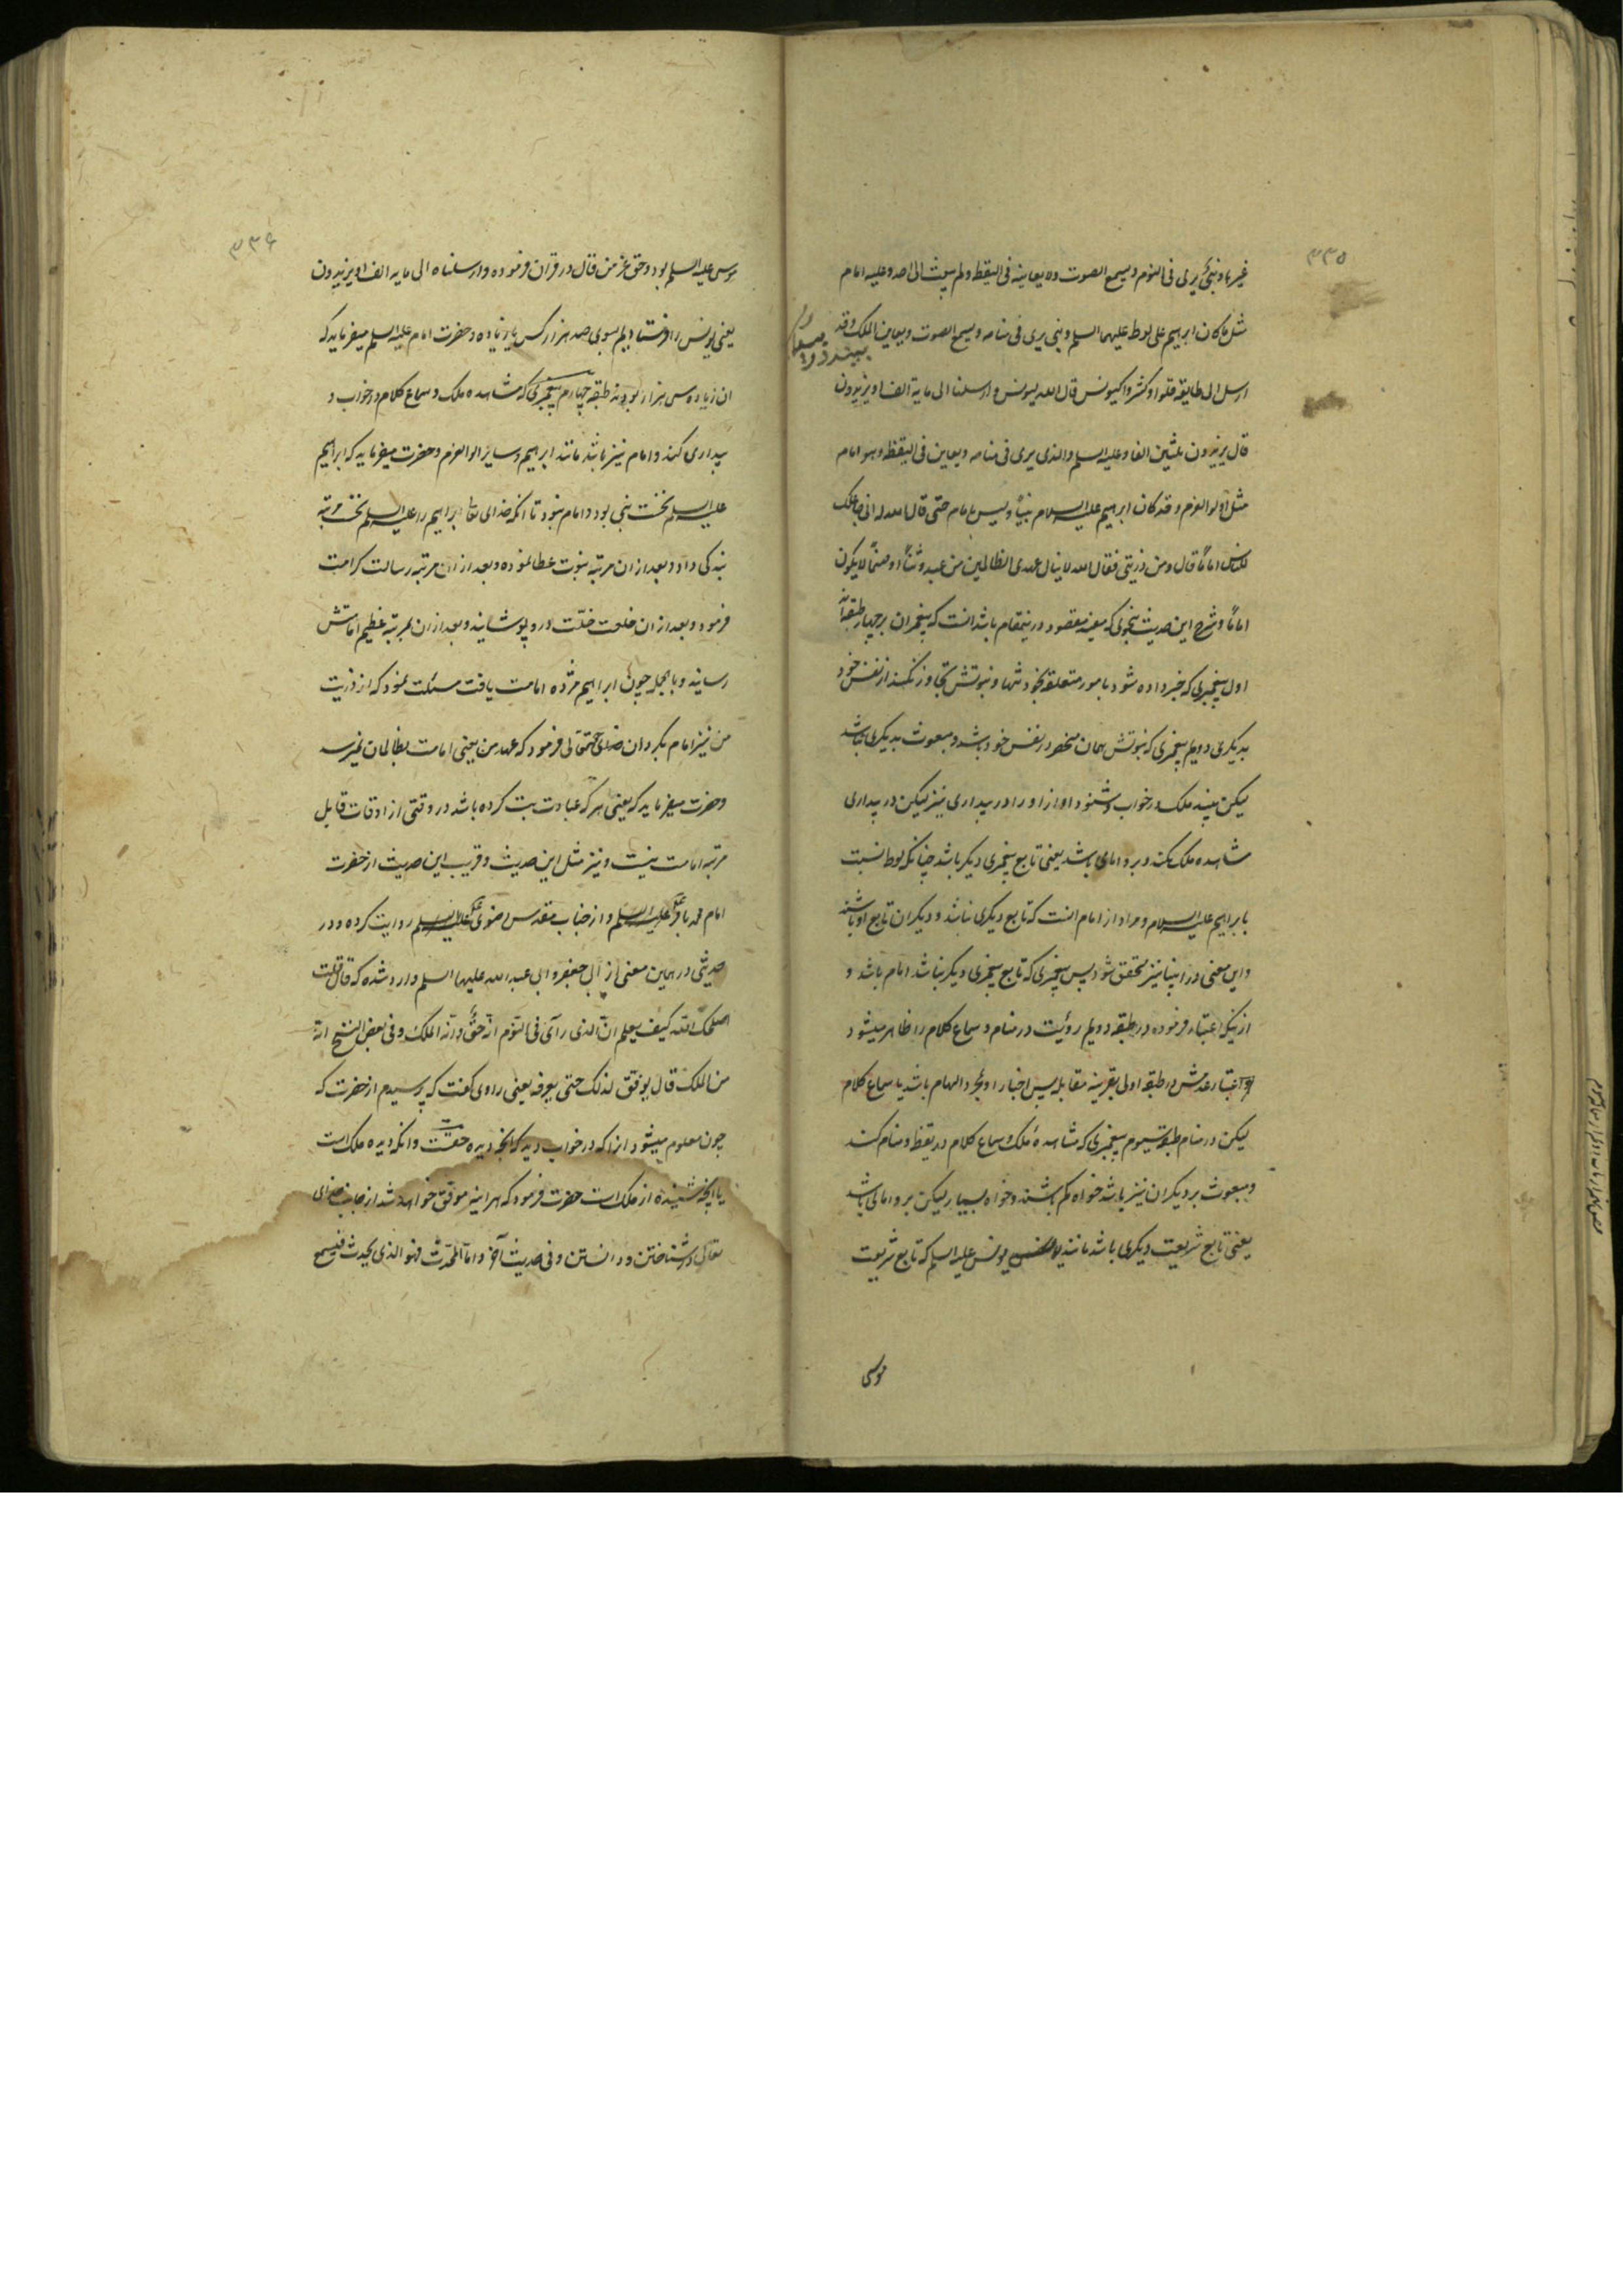 ۳۳۵
غیرها و نبی یری فی النوم و یسمع الصوت و لا یعاینه فی الیقظه و لم یبعث الی احد و علیه امام
مثل ما کان ابرهیم علی لوط علیهما السلم و نبی یری فی منامه و یسمع الصوت و یعاین الملک و قد
ارسل الی طایفة قلوا او کثروا کیونس قال الله لیونس و ارسلنا الی مایة الف او یزیدون
قال یزیدون ثلثین الفا و علیه السلم و الذی یری فی منامه و یعاین فی الیقظه و هو امام
مثل اولو العزم و قد کان ابرهیم علیه السلام نبیاً و لیس بامام حتی قال الله له انی جاعلک
للناس اماماً قال و من ذریتی فقال الله لا ینال عهدی الظالمین من عبد وثناً او صنماً لا یکون
اماماً و شرح این حدیث بنحوی که مفید مقصود در ینمقام باشد انست که پیغمبران بر چهار طبقه‌اند
اول پیغمبری که خبر داده شود بامور متعلقه بخود تنها و نبوتش تجاوز نکند از نفس خود
بدیکری دویم پیغمبری که نبوتش همان منحصر در نفس خود باشد و مبعوث بدیکری نباشد
لیکن بیند ملک در خواب و شنود اواز او را در بیداری نیز لیکن در بیداری
مشاهده ملک نکند و برو امامی باشد یعنی تابع پیغمبری دیکر باشد چنانکه لوط نسبت
بابراهیم علیه السلام و مراد از امام انست که تابع دیکری نباشد و دیکران تابع او باشند
و این معنی در انبیا نیز متحقق شود پس پیغمبری که تابع پیغمبری دیکر نباشد امام باشد و
از نیکه اعتبار فرموده در طبقه دویم رؤیت در منام و سماع کلام را ظاهر میشود
اعتبار عدمش در طبقه اولی بقرینه مقابله پس اخبار او بمجرد الهام باشد یا سماع کلام
لیکن در منام طبقه سیوم پیغمبری که مشاهده ملک و سماع کلام در یقظه و منام کند
و مبعوث بر دیکران نیز باشد خواه کم باشند و خواه بسیار لیکن برو امامی باشد
یعنی تابع شریعت دیکری باشد مانند یونس علیه السلم که تابع شریعت
موسی
۳۳۶
موسی علیه السلم بود و حق عز من قائل در قران فرموده و ارسلناه الی مایة الف او یزیدون
یعنی یونس را فرستادیم بسوی صد هزار کس یا زیاده و حضرت امام علیه السلم میفرماید که
ان زیاده سی هزار بودند طبقه چهارم پیغمبری که مشاهده ملک و سماع کلام در خواب و
بیداری کند و امام نیز باشد مانند ابرهیم و سایر اولوا العزم و حضرت میفرماید که ابراهیم
علیه السلم نخست نبی بود و امام نبود تا انکه خدای تعالی ابراهیم را علیه السلم نخست مرتبه
بندکی داد و بعد از ان مرتبه نبوت عطا نموده و بعد از ان مرتبه رسالت کرامت
فرمود و بعد از ان خلعت خلّت درو پوشانید و بعد از ان بمرتبه عظیم امامتش
رسانید و بالجمله چون ابراهیم مژده امامت یافت مسئلت نمود که از ذریت
من نیز امام بکردان خدای تعالی فرمود که عهد من یعنی امامت بظالمان نمیرسد
و حضرت میفرماید که یعنی هر که عبادت بت کرده باشد در وقتی از اوقات قابل
مرتبه امامت نیست و نیز مثل این حدیث و قریب این حدیث از حضرت
امام محمد باقر علیه السلم و از جناب مقدس رضوی علیه السلم روایت کرده و در
حدیثی در همین معنی از ابی جعفر و ابی عبد الله علیهما السلم وارد شده که قال قلت
اصلحک الله کیف یعلم انّ الذی رآی فی النّوم انّه حقّ و انّه الملک و فی بعض النسخ انّه
من الملک قال یوفق لذلک حتی یعرفه یعنی راوی کفت که پرسیدم از حضرت که
چون معلوم میشود انرا که در خواب دیده که انچه دیده حقست و انکه دیده ملک است
یا انچه شنیده از ملک است حضرت فرمود که هراینه موفق خواهد شد از جانب خدای
تعالی در شناختن و دانستن و فی حدیث آخر و امّا المحدّث فهو الذی یحدث فیسمع